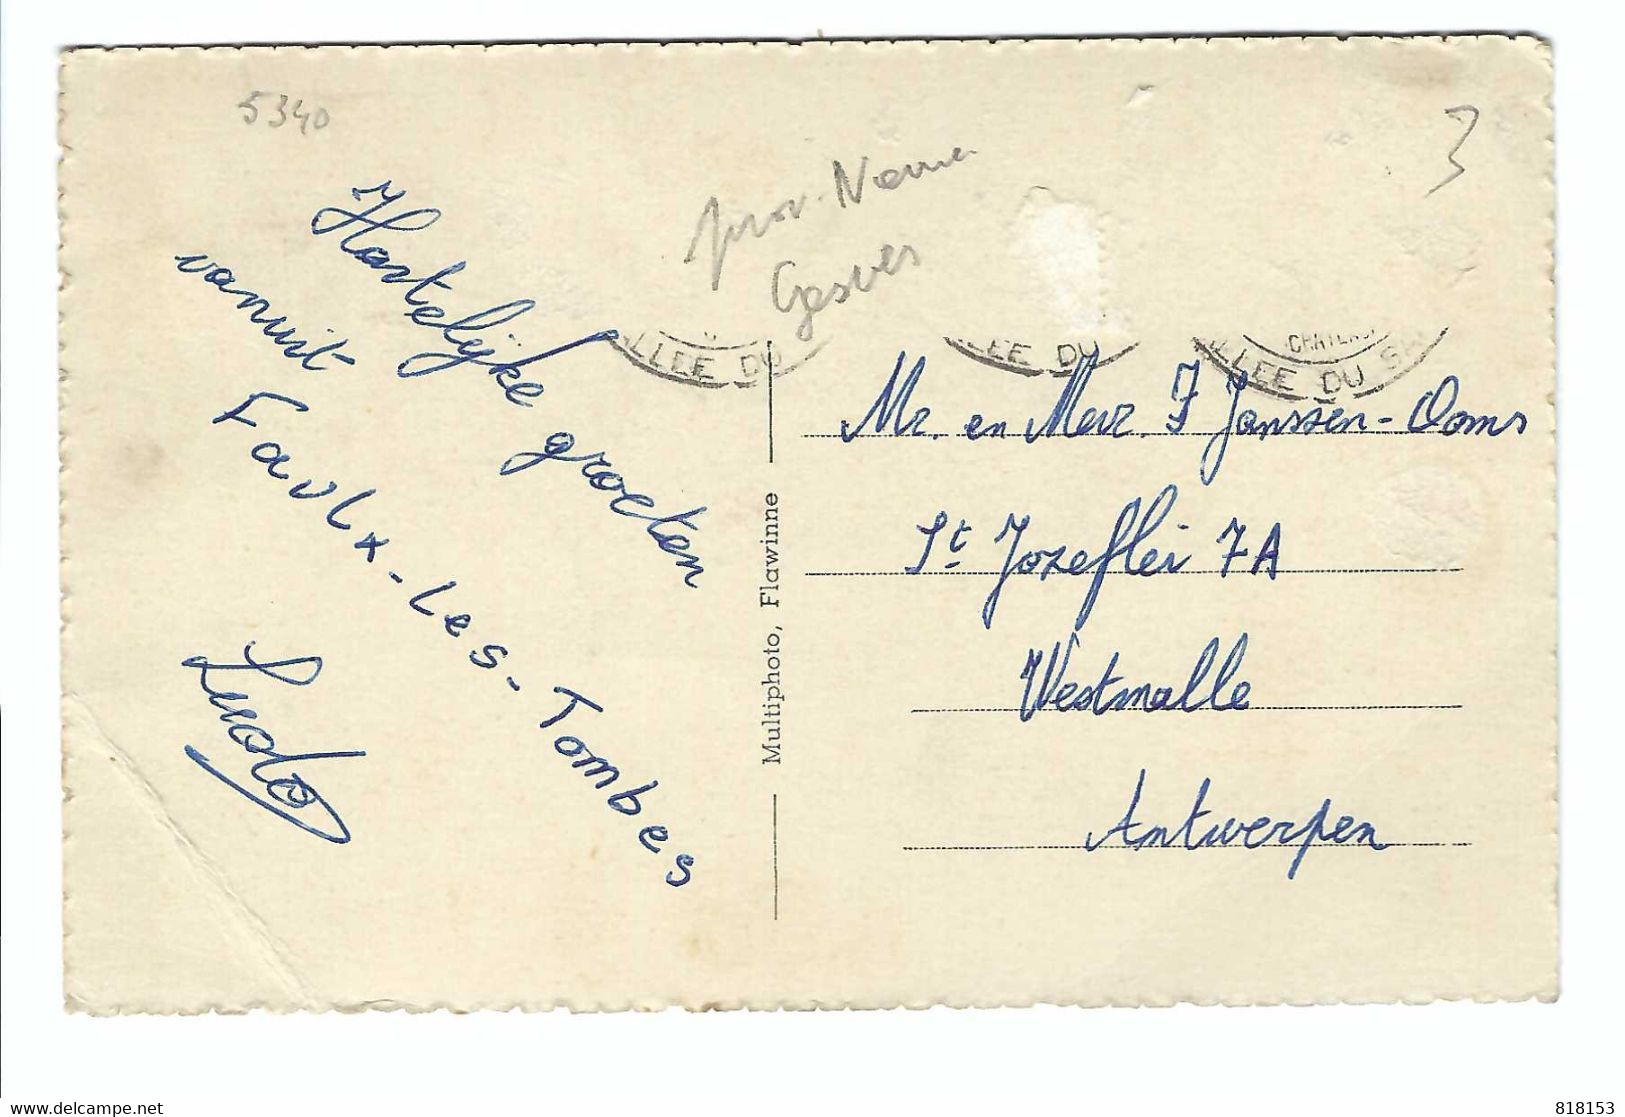 5340
prov. Namen
Gesves
3
Hartelijke groeten
vanuit
Faulx-les-Tombes
Ludo
Multiphoto, Flawinne
LLEE DU
LEE DU
LLEE DU S
CHATEAU
Mr. en Mevr. J Janssen-Ooms
St Jozeflei 7A
Westmalle
Antwerpen
delcampe.net
818153